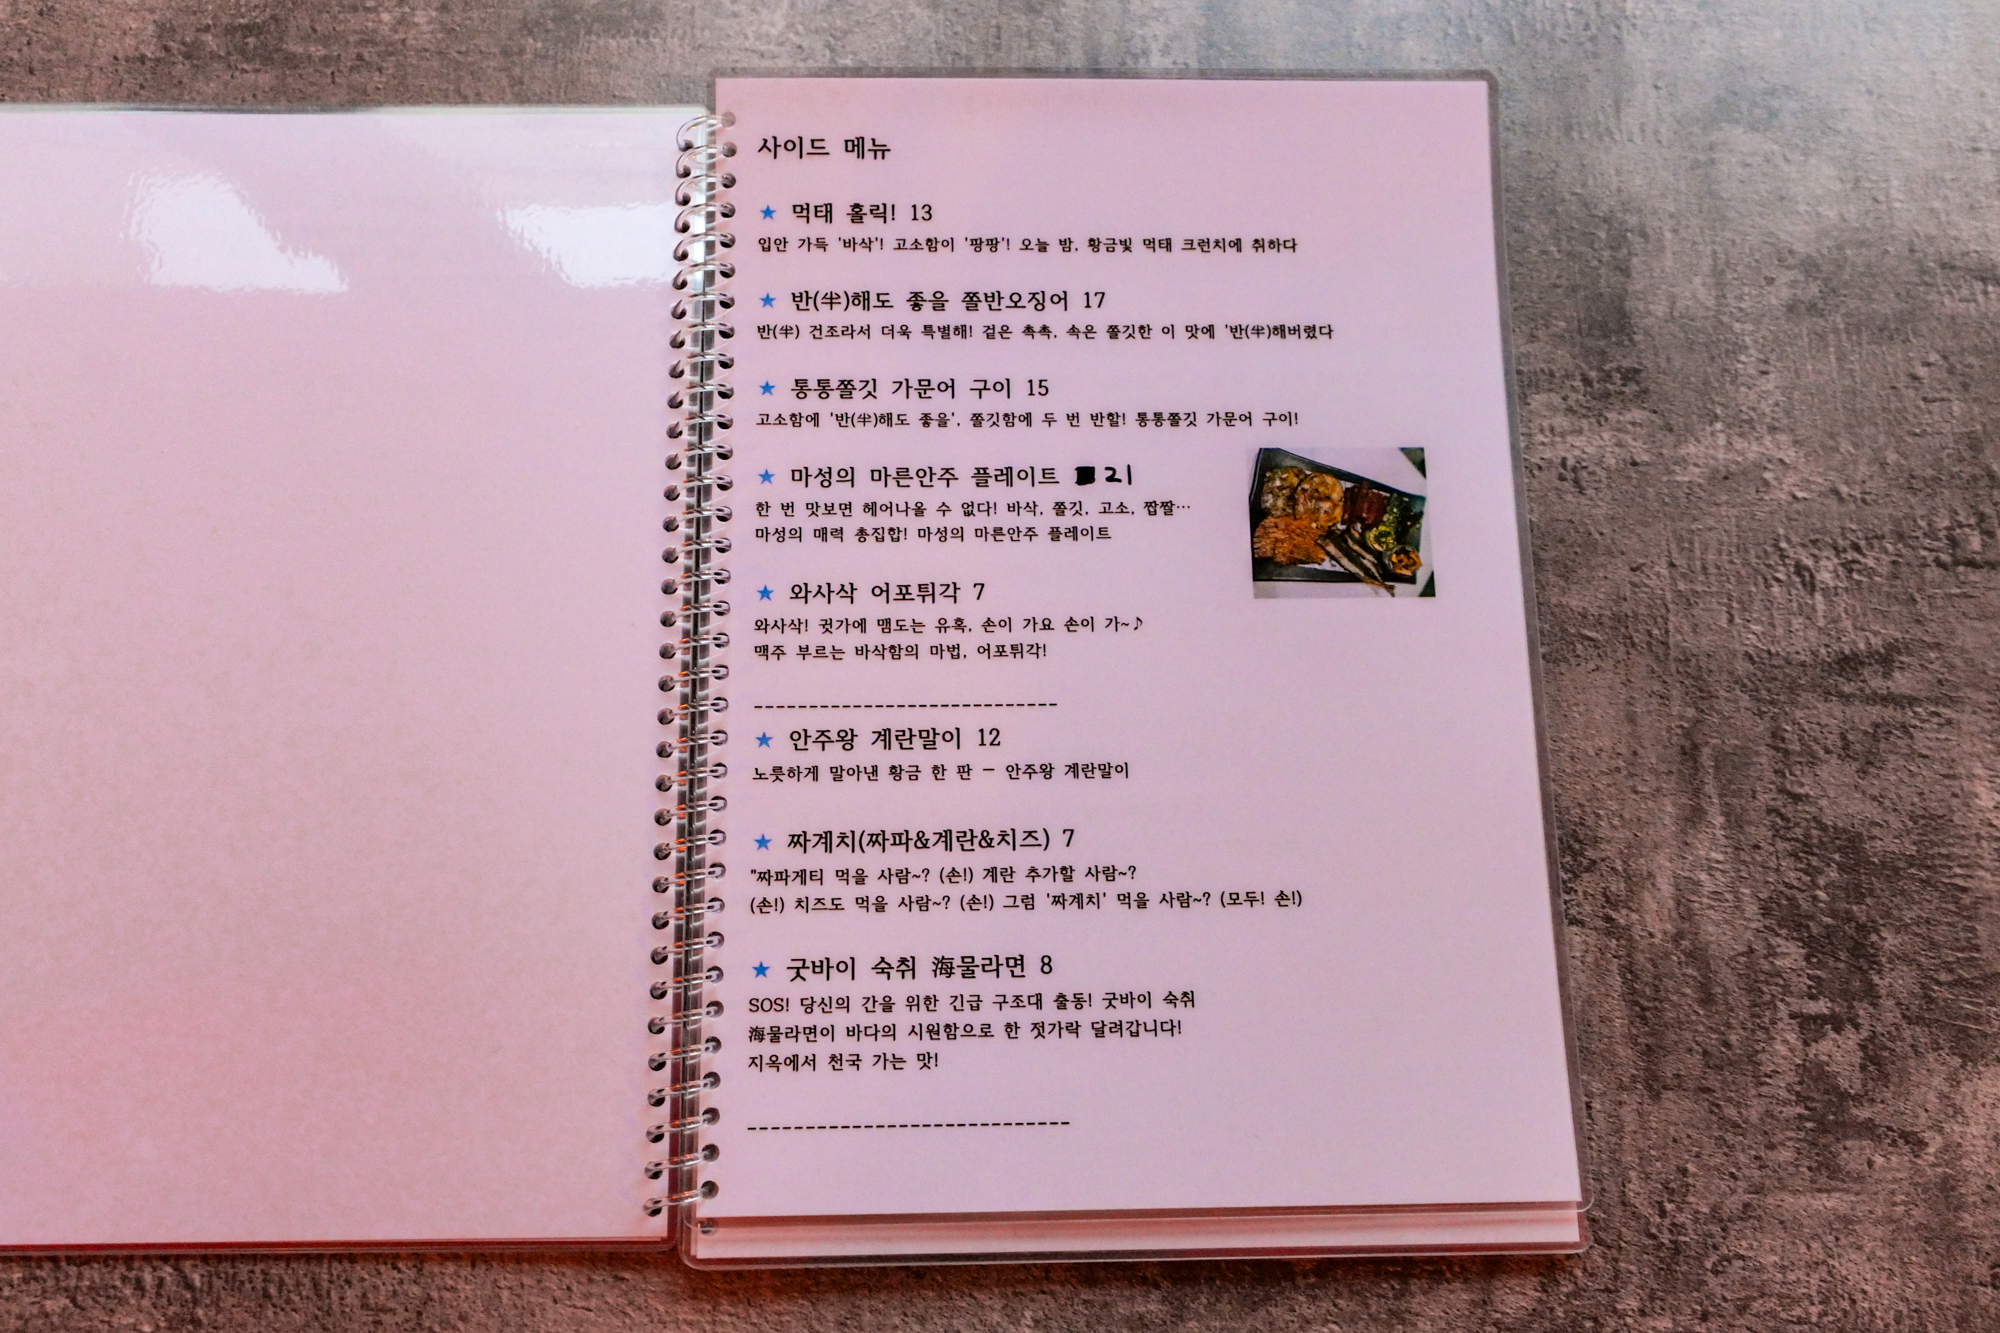 사이드 메뉴
★ 먹태 홀릭! 13
입안 가득 '바삭'! 고소함이 '팡팡'! 오늘 밤, 황금빛 먹태 크런치에 취하다
★ 반(半)해도 좋을 쫄반오징어 17
반(半) 건조라서 더욱 특별해! 겉은 촉촉, 속은 쫄깃한 이 맛에 '반(半)해버렸다
★ 통통쫄깃 가문어 구이 15
고소함에 '반(半)해도 좋을', 쫄깃함에 두 번 반할! 통통쫄깃 가문어 구이!
★ 마성의 마른안주 플레이트 21
한 번 맛보면 헤어나올 수 없다! 바삭, 쫄깃, 고소, 짭짤…
마성의 매력 총집합! 마성의 마른안주 플레이트
★ 와사삭 어포튀각 7
와사삭! 귓가에 맴도는 유혹, 손이 가요 손이 가~♪
맥주 부르는 바삭함의 마법, 어포튀각!
---------------------------
★ 안주왕 계란말이 12
노릇하게 말아낸 황금 한 판 – 안주왕 계란말이
★ 짜계치(짜파&계란&치즈) 7
"짜파게티 먹을 사람~? (손!) 계란 추가할 사람~?
(손!) 치즈도 먹을 사람~? (손!) 그럼 '짜계치' 먹을 사람~? (모두! 손!)
★ 굿바이 숙취 海물라면 8
SOS! 당신의 간을 위한 긴급 구조대 출동! 굿바이 숙취
海물라면이 바다의 시원함으로 한 젓가락 달려갑니다!
지옥에서 천국 가는 맛!
---------------------------